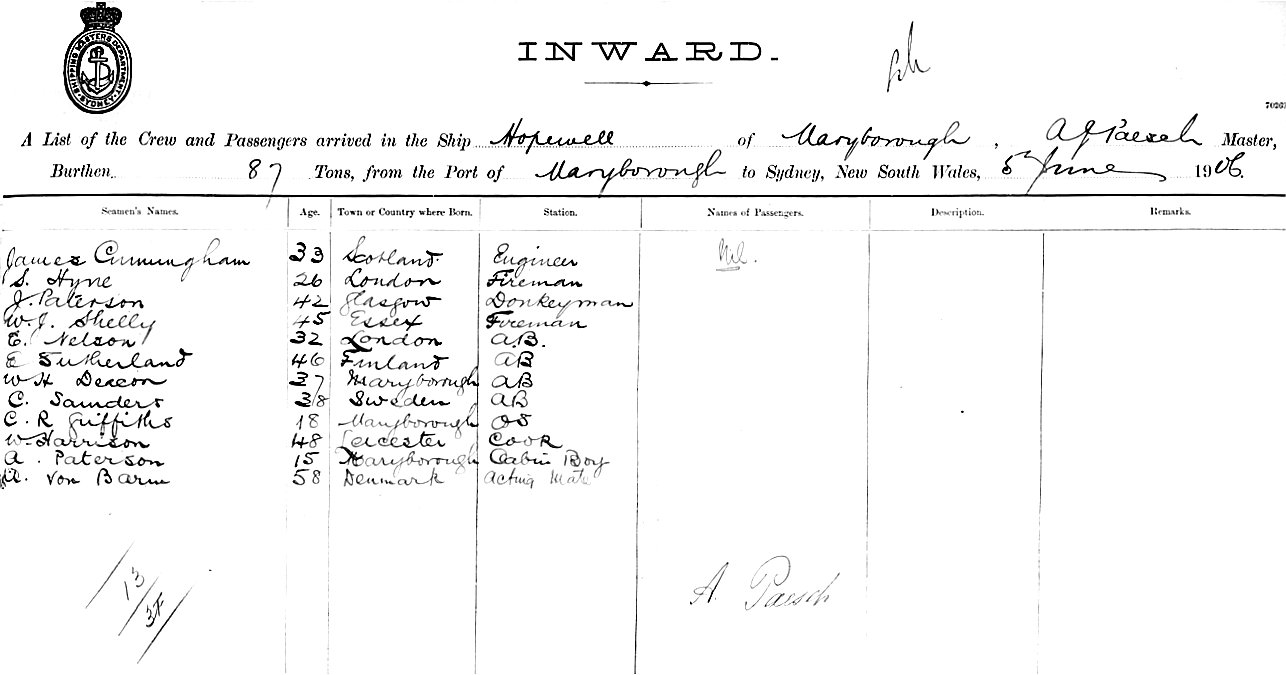 SHIPPING MASTERS DEPARTMENT
SYDNEY
INWARD.
A List of the Crew and Passengers arrived in the Ship Hopewell of Maryborough, A J Paesch Master,
Burthen 87 Tons, from the Port of Maryborough to Sydney, New South Wales, 5th June 1906.
Seamen's Names. Age. Town or Country where Born. Station. Names of Passengers. Description. Remarks.
James Cunningham 33 Scotland Engineer Nil.
S. Hyne 26 London Fireman
J. Paterson 42 Glasgow Donkeyman
W. J. Shelly 45 Essex Fireman
E. Nelson 32 London A.B.
E Sutherland 46 Finland AB
W H Deacon 37 Maryborough AB
C. Saunders 38 Sweden AB
C. R Griffiths 18 Maryborough OS
W Harrison 48 Leicester Cook
A. Paterson 15 Maryborough Cabin Boy
A. Von Barm 58 Denmark Acting Mate
13
3F
A. Paesch